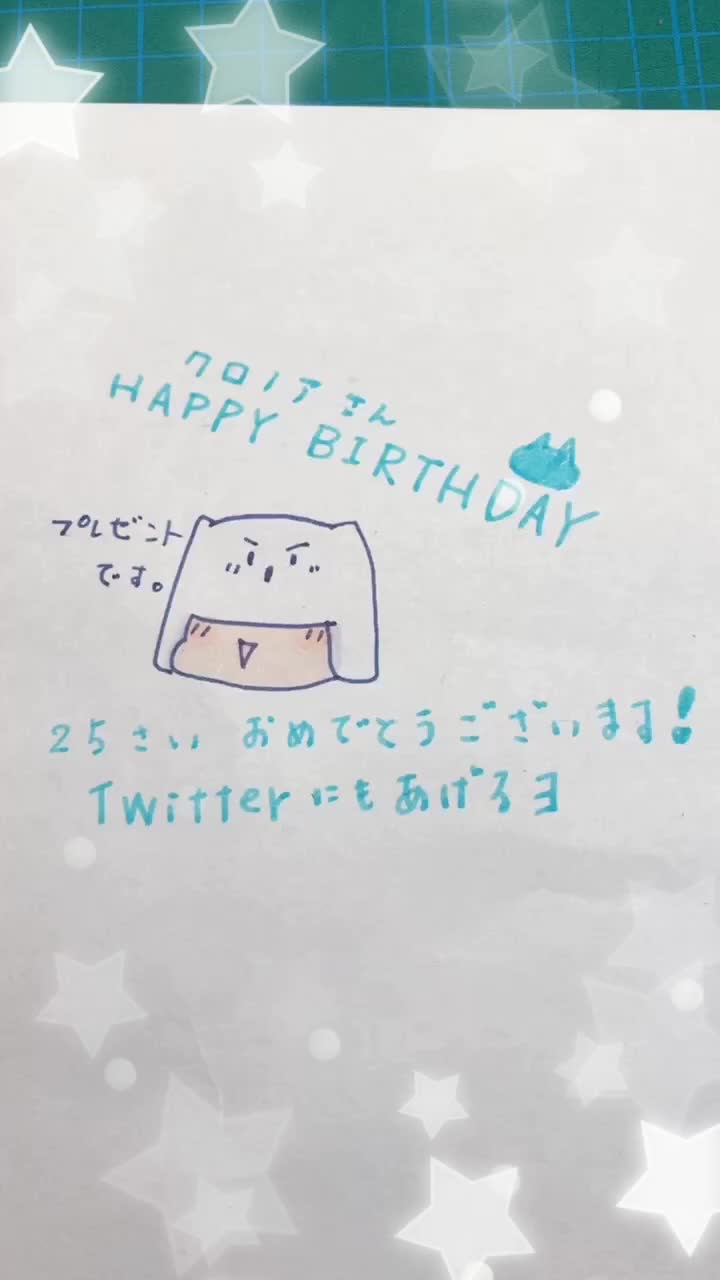 クロノアさん
HAPPY BIRTHDAY
プレゼント
です。
25さい おめでとうございます!
Twitterにもあげろヨ